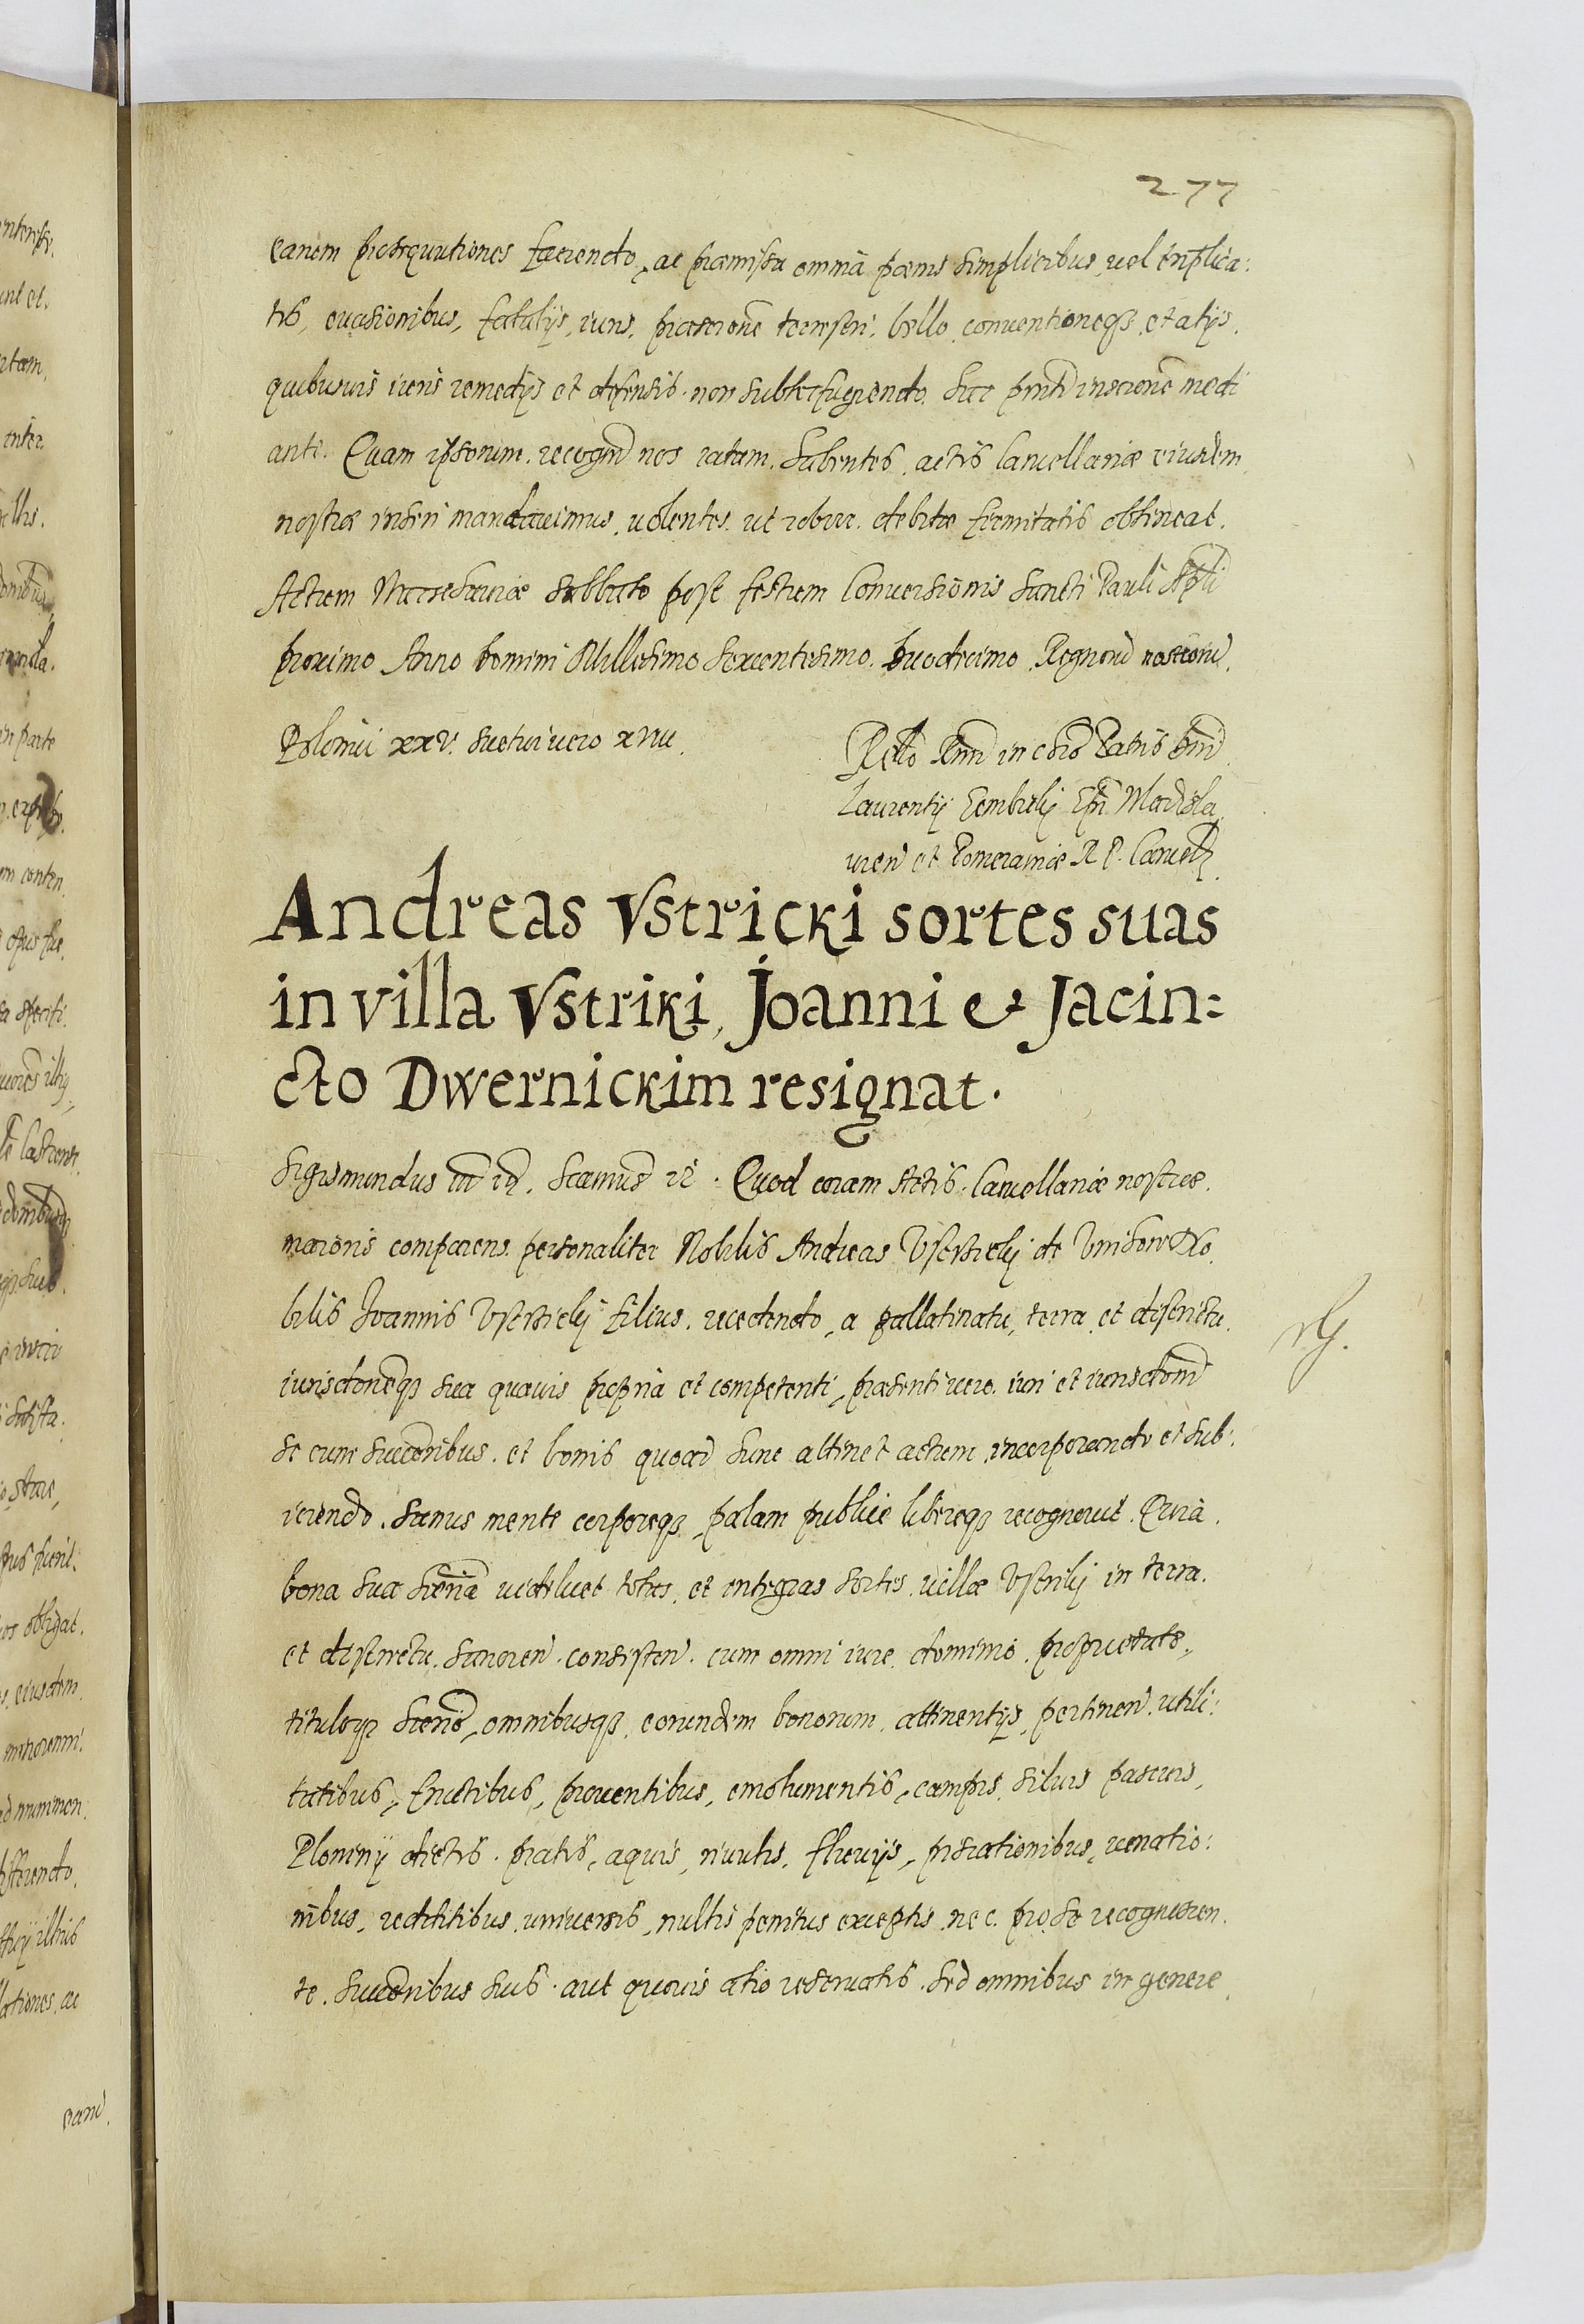 277
earum prosequutiones faciendo, ac praemissa omnia poenis simplicibus, uel triplica:
tis, euasionibus, fatalijs, iuris, praescrione terrestri, bello, conuentioneqʒ, et alijs,
quibusuis iuris remedijs et defensis non subterfugiendo. hac pnti inscrione medi
ante. Quam ipsorum recogn nos ratam habentes, actis Cancellariae eiusdem
nostrae inseri mandauimus, uolentes ut robur debitae firmitatis obtineat.
Actum Warschauiae sabbato post festum Conuersionis Sancti Pauli Apli
proximo Anno Domini Millesimo Sexcentesimo Duodecimo. Regnoru nostroru
Poloniae xxv. Suetiae uero xviii.
Rello Rmi in Chro Patris Dni
Laurentij Gembicki Epi Wladisla
uien et Pomeraniae R P. Cancell
Andreas Vstricki sortes suas
in villa Vstriki, Joanni et Jacin=
cto Dwernickim resignat.
Sigismundus III etc. Scamus etc. Quod coram Actis Cancellariae nostrae
maioris comparens personaliter Nobilis Andreas Vstrzicki de Vnihow No
bilis Joannis Vstrzicki filius, recedendo, a pallatinatu, terra et districtu
iurisdoneqʒ sua quauis propria et competenti, praesenti uero iuri et iurisdom
se cum succoribus et bonis quoad hunc attinet actum, incorporando et sub:
iiciendo. Sanus mente corporeqʒ, palam publice libereqʒ recognouit. Quia
bona sua haeria uidelicet totas et integras sortes uillae Vstriki in terra
et districtu Sanocen consisten. cum omni iure, dominio, proprietate,
tituloqʒ haerio, omnibusqʒ eorundem bonorum attinentijs, pertinen, utili:
tatibus, fructibus, prouentibus, emolumentis, campis, siluis pascuis,
Plominy dictis, pratis, aquis, riuulis, fluuijs, piscationibus, uenatio:
nibus, redditibus uniuersis, nullis penitus exceptis, nec pro se recognoscen
te, succoribus suis aut quouis alio reseruatis. Sed omnibus in genere